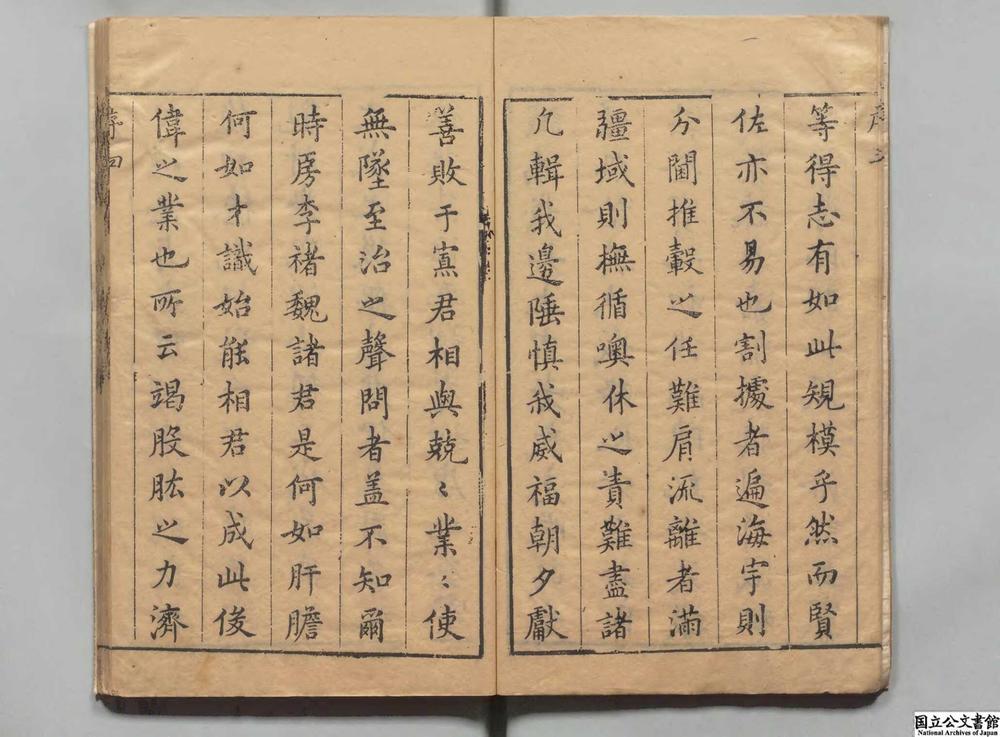 等得志有如此規模乎然而賢
佐亦不易也割據者遍海宇則
分閫推轂之任難肩流離者滿
疆域則撫循噢休之責難盡諸
凢輯我邊陲慎我威福朝夕獻
善敗于寡君相與兢〻業〻使
無墜至治之聲問者盖不知爾
時房李褚魏諸君是何如肝膽
何如才識始能相君以成此俊
偉之業也所云竭股肱之力濟
序四
国立公文書館
National Archives of Japan